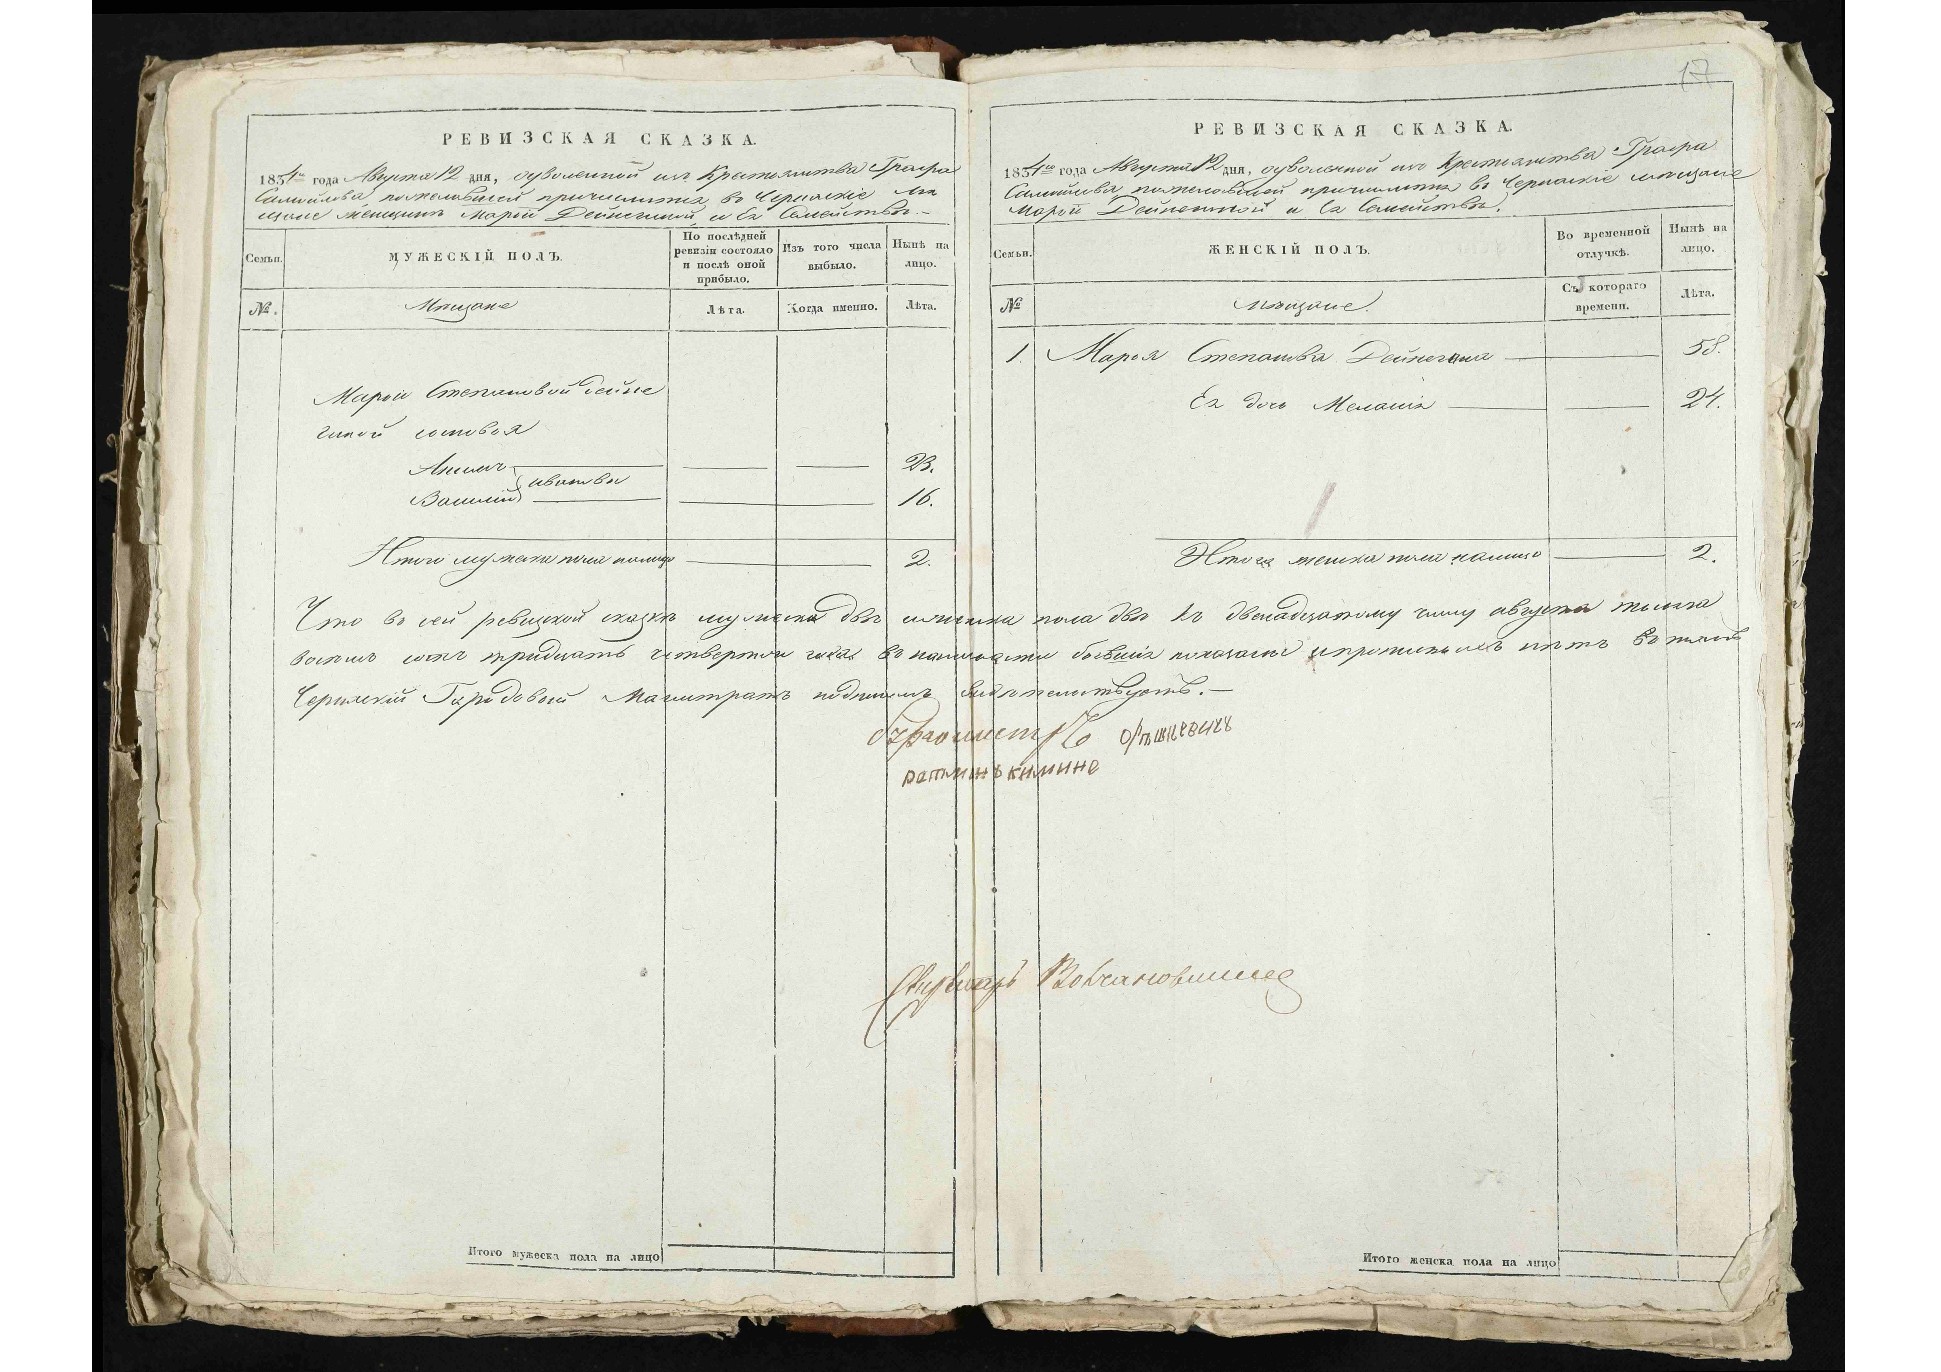 РЕВИЗСКАЯ СКАЗКА.
1834го года Августа 12 дня, уволенной изъ Крестьянства Графа
Самойлова пожелавшей причислится въ Черкаскіе мѣ
щане женщины Марьи Дейнегиной и Ея Семейства.
Семьи.
МУЖЕСКІЙ ПОЛЪ.
По послѣдней
ревизіи состояло
и послѣ оной
прибыло.
Изъ того числа
выбыло.
Нынѣ на
лицо.
№.
Мѣщане
Лѣта.
Когда именно.
Лѣта.
Марьи Степановой Дейне
гиной сыновья
Акимъ 23.
Ивановы
Василій 16.
Итого мужеска пола налицо 2.
Итого мужеска пола на лицо
17
РЕВИЗСКАЯ СКАЗКА.
1834го года Августа 12 дня, уволенной изъ Крестьянства Графа
Самойлова пожелавшей причислится въ Черкаскіе мѣщане
Марьи Дейнегиной и Ея Семейства.
Семьи.
ЖЕНСКІЙ ПОЛЪ.
Во временной
отлучкѣ.
Нынѣ на
лицо.
№
мѣщане.
Съ котораго
времени.
Лѣта.
1. Марья Степанова Дейнегина 58.
Ея дочь Меланія 24.
Итого женска пола налицо 2.
Что въ сей ревизской сказкѣ мужеска два и женска пола двѣ къ двенадцатому числу августа тысяча
восемъ сотъ тридцать четвертого года въ наличности бывшія показаны и прописныхъ нѣтъ въ томъ
Черкаскій Городовый Магистратъ подписомъ свидѣтельствуетъ.
Бургомистръ
ратманъ
Секретарь
Итого женска пола на лицо